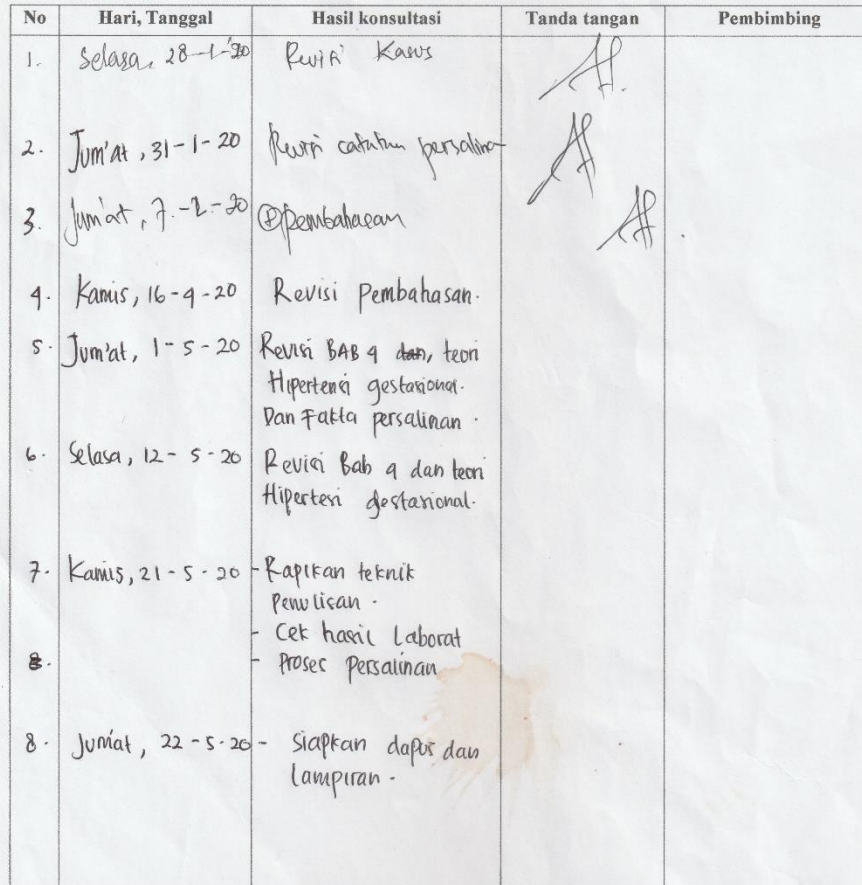 No Hari, Tanggal Hasil konsultasi Tanda tangan Pembimbing
1. Selasa, 28-1-20 Revisi Kasus
2. Jum'at, 31-1-20 Revisi catatan persalinan
3. Jum'at, 7-2-20 pembahasan
4. Kamis, 16-4-20 Revisi Pembahasan.
5. Jum'at, 1-5-20 Revisi BAB 4 dan, teori
Hipertensi gestasional.
Dan Fakta persalinan.
6. Selasa, 12-5-20 Revisi Bab 4 dan teori
Hipertesi gestasional.
7. Kamis, 21-5-20 - Rapikan teknik
penulisan.
- Cek hasil Laborat
8. - Proses Persalinan
8. Jum'at, 22-5-20 - Siapkan dapus dan
lampiran.